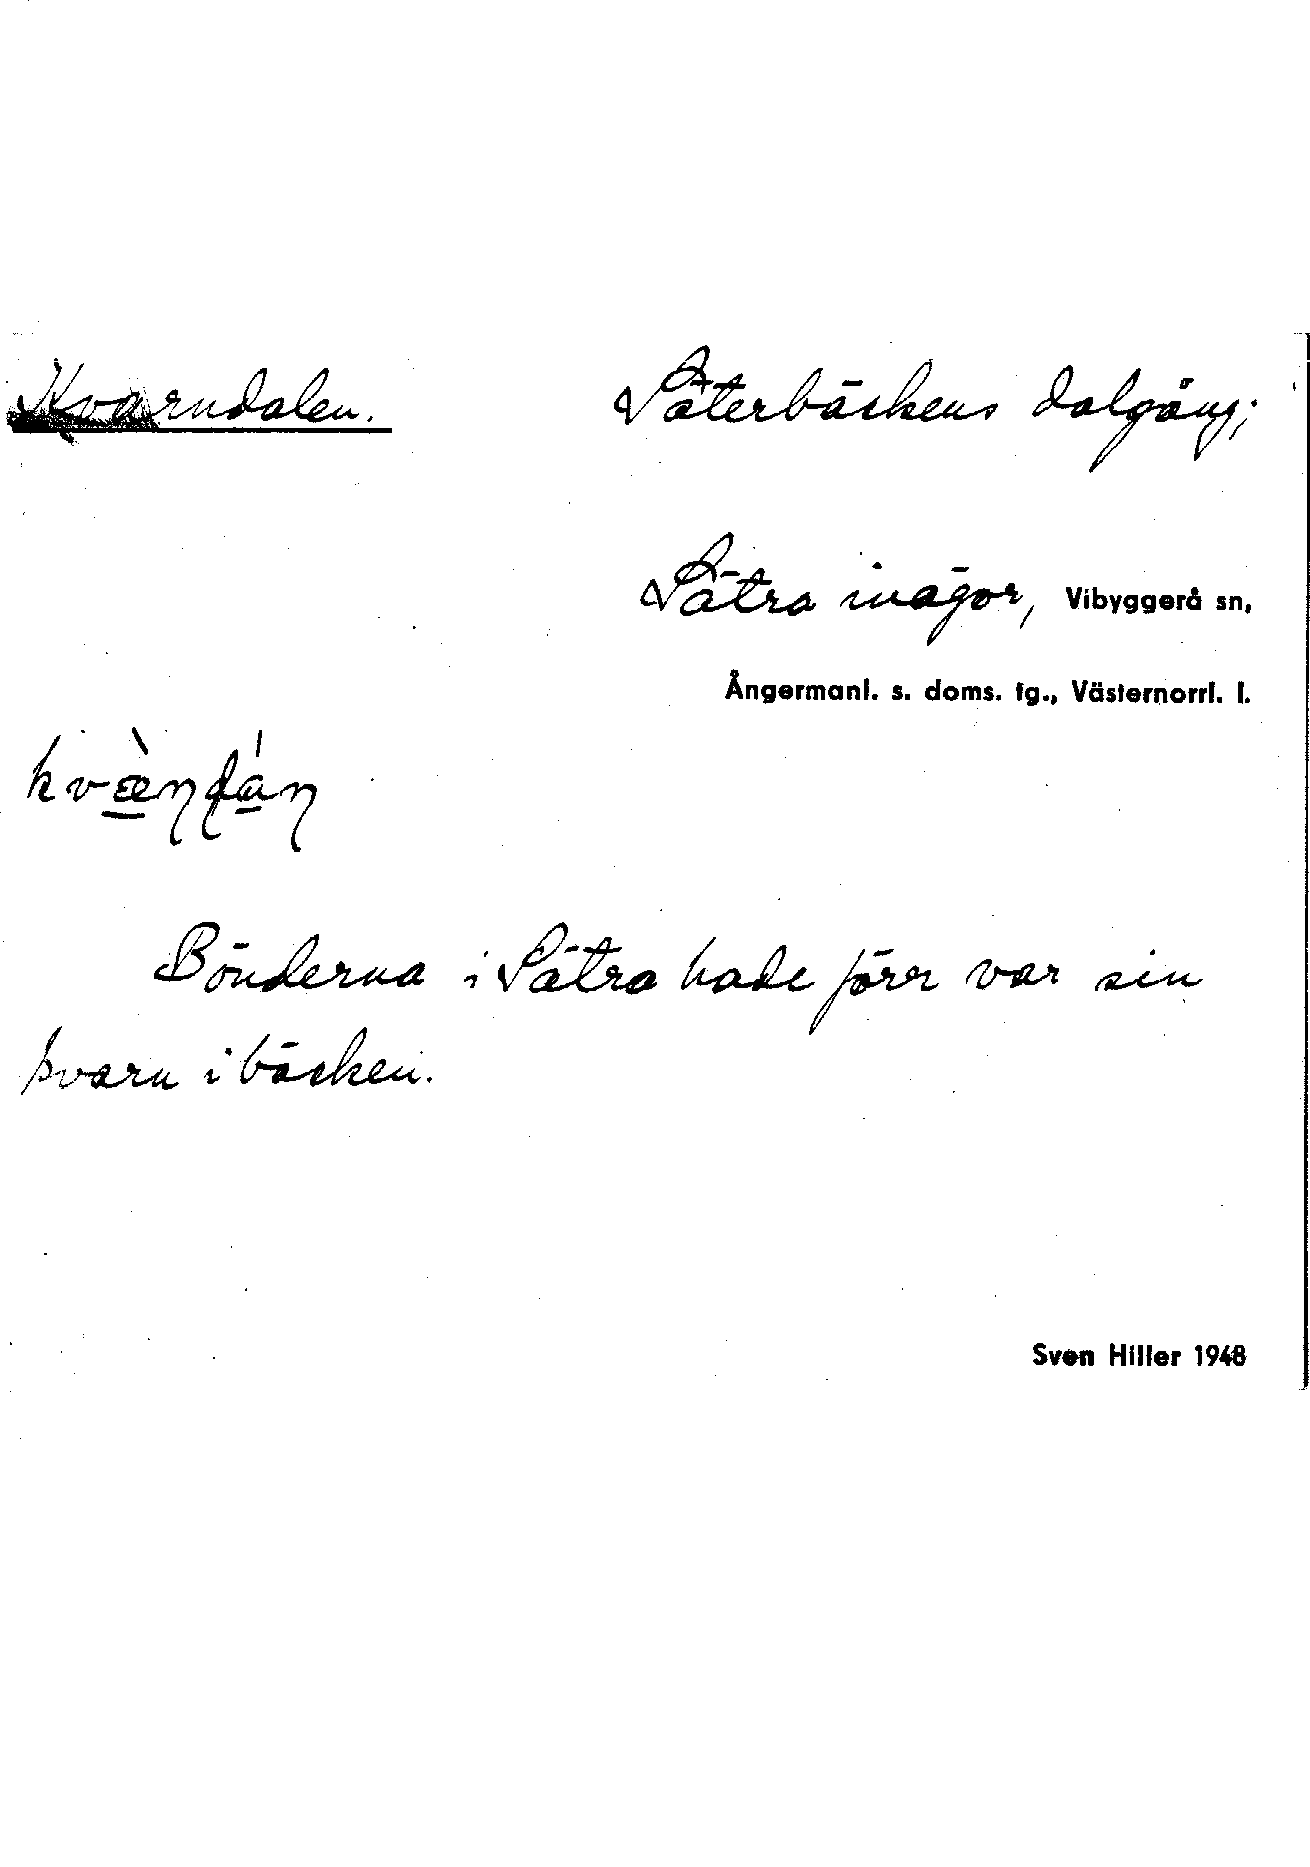 Kvarndalen. Säterbäckens dalgång;
Sätra inägor, Vibyggerå sn,
Ångermanl. s. doms. tg., Västernorrl. l.
Bönderna i Sätra hade förr var sin
kvarn i bäcken.
Sven Hiller 1948